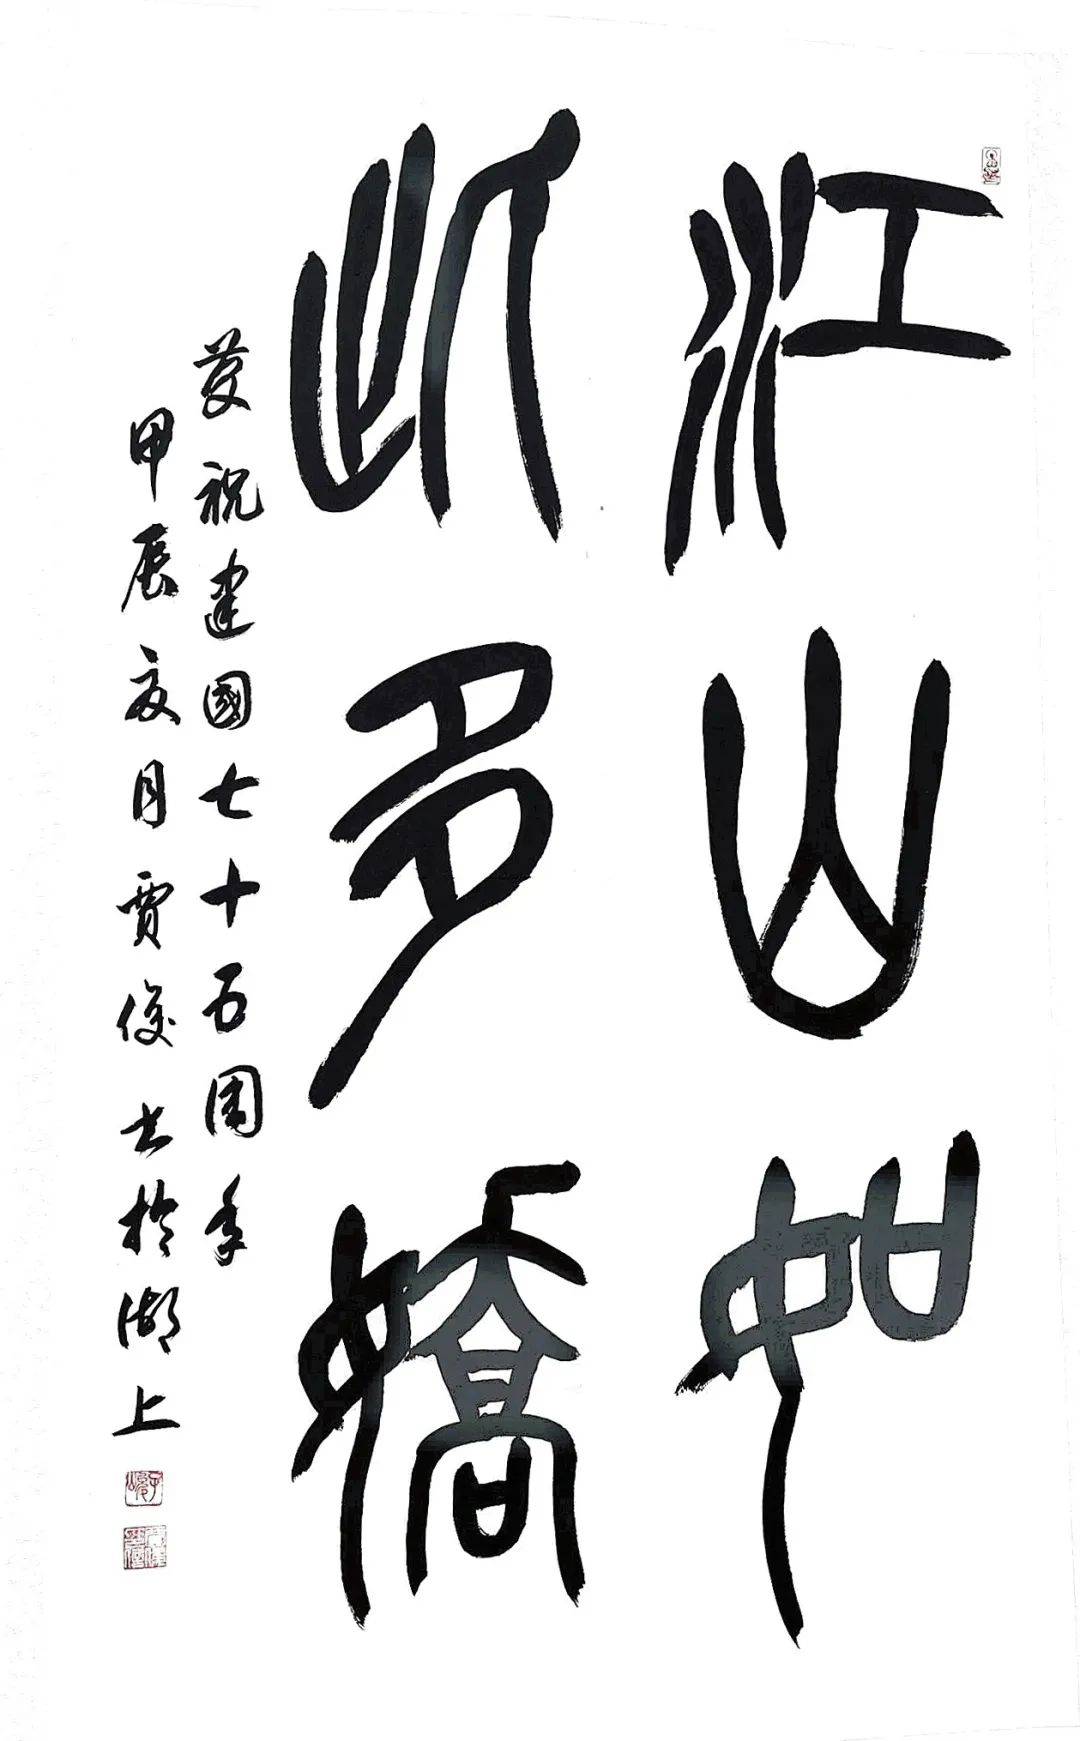 江山如
此多嬌
慶祝建國七十五周年
甲辰夏月賈俊书於湖上